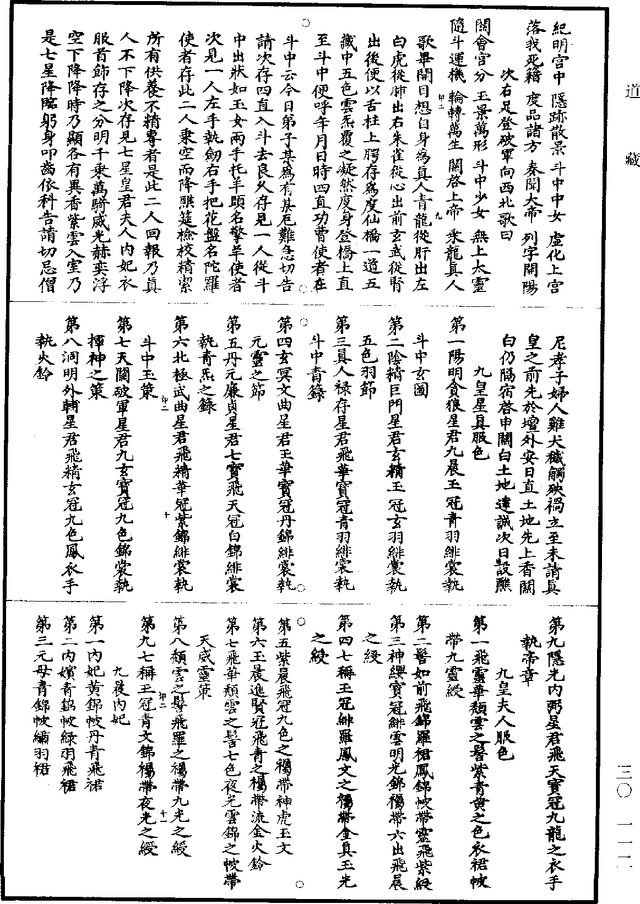 道藏
紀明宮中 隱跡散景 斗中中女 虛化上宮
落我死籍 度品諸方 奏聞大帝 列字開陽
次右足登破軍向西北歌曰
關會宮分 玉景萬形 斗中少女 無上太靈
隨斗運機 輪轉萬生 關啓上帝 乘龍真人
歌畢閉目想自身為真人青龍從肝出左
白虎從肺出右朱雀從心出前玄武從腎
出後便以舌柱上腭存為度仙橋一道五
藏中五色雲炁覆之凝然度身登橋上直
至斗中便呼年月日時四直功曹使者在
斗中云今日弟子某為有某厄難急切告
請次存四直入斗去良久存見一人從斗
中出狀如玉女兩手托羊頭名擎羊使者
次見一人左手執劒右手把花盤名陀羅
使者存此二人乘空而降醮筵檢校精潔
所有供養不精專者是此二人回報乃真
人不下降次存見七星皇君夫人內妃衣
服首飾存之分明千乘萬騎威光赫奕浮
空下降降時乃顯各有異香紫雲入室乃
是七星降臨躬身叩齒依科告請切忌僧
尼孝子婦人雞犬穢觸殃禍立至未請真
皇之前先於壇外安日直土地先上香關
白仍隔宿啓申關白土地達誠次日設醮
九皇星真服色
第一陽明貪狼星君九晨玉冠青羽緋裳執
斗中玄圖
第二陰精巨門星君玄精玉冠玄羽緋裳執
五色羽節
第三真人祿存星君飛華寶冠青羽緋裳執
斗中青籙
第四玄冥文曲星君玉華寶冠丹錦緋裳執
元靈之節
第五丹元廉貞星君七寶飛天冠白錦緋裳
執青炁之籙
第六北極武曲星君飛精華冠紫錦緋裳執
斗中玉策
第七天關破軍星君九玄寶冠九色錦裳執
揮神之策
第八洞明外輔星君飛精玄冠九色鳳衣手
執火鈴
第九隱光內弼星君飛天寶冠九龍之衣手
執帝章
九皇夫人服色
第一飛靈華頹雲之髻紫青黄之色衣裙帔
帶九靈綬
第二髻如前飛錦羅裙鳳錦帔帶靈飛紫綬
第三神纓寶冠緋雲明光錦襡帶六出飛晨
之綬
第四七稱玉冠緋羅鳳文之襡帶金真玉光
之綬
第五紫晨飛冠九色之襡帶神虎玉文
第六玉晨進賢冠飛青之襡帶流金火鈴
第七飛華頹雲之髻七色夜光雲錦之帔帶
天威靈策
第八頹雲之髻飛羅之襡帶九光之綬
第九七稱玉冠青文錦襡帶夜光之綬
九晨內妃
第一內妃黄錦帔丹青飛裙
第二內嬪青錦帔綠羽飛裙
第三元母青錦帔繡羽裙
三〇 一一一